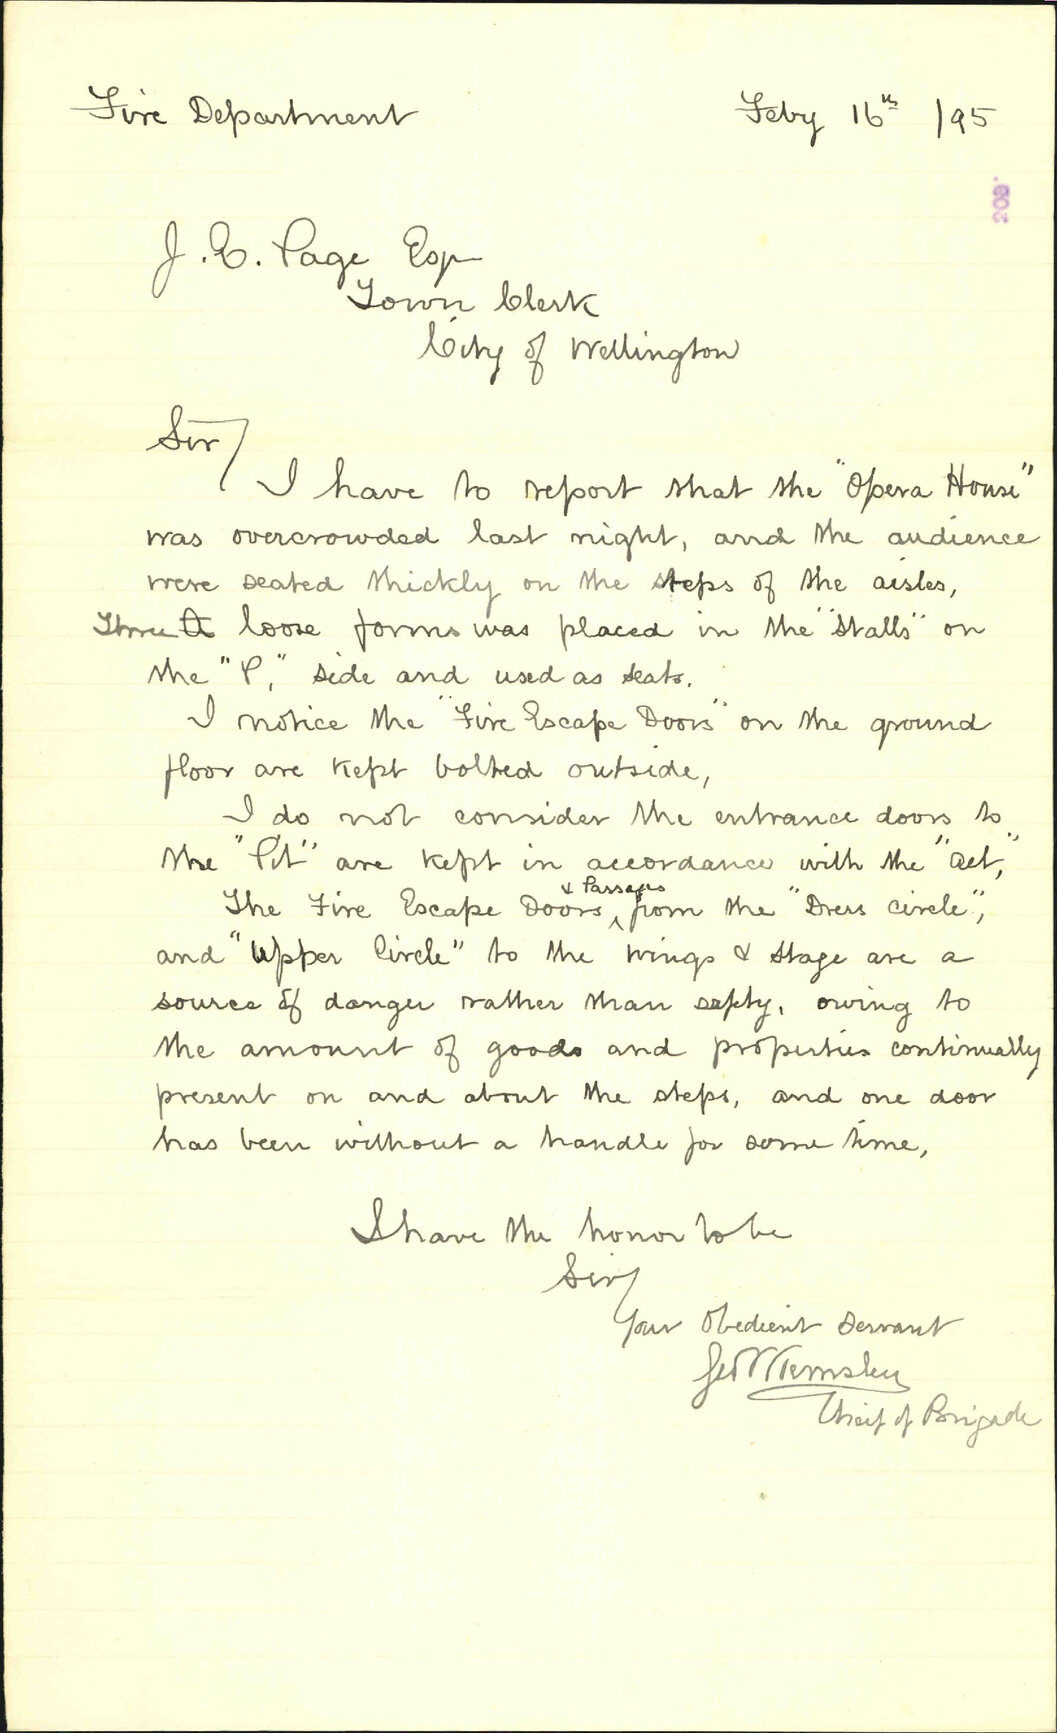 Fire Department Feby 16th /95
209
J. E. Page Esq
Town Clerk
City of Wellington
Sir/
I have to report that the "Opera House"
was overcrowded last night, and the audience
were seated thickly on the steps of the aisles,
Three A loose forms was placed in the "Stalls" on
the "P," side and used as seats.
I notice the "Fire Escape Doors" on the ground
floor are kept bolted outside,
I do not consider the entrance doors to
the "Pit" are kept in accordance with the "Act,"
& Passages
The Fire Escape Doors, from the "Dress circle",
and "Upper Circle" to the wings & stage are a
source of danger rather than safty, owing to
the amount of goods and properties continually
present on and about the steps, and one door
has been without a handle for some time,
I have the honor to be
Sir/
Your Obedient Servant
Chief of Brigade